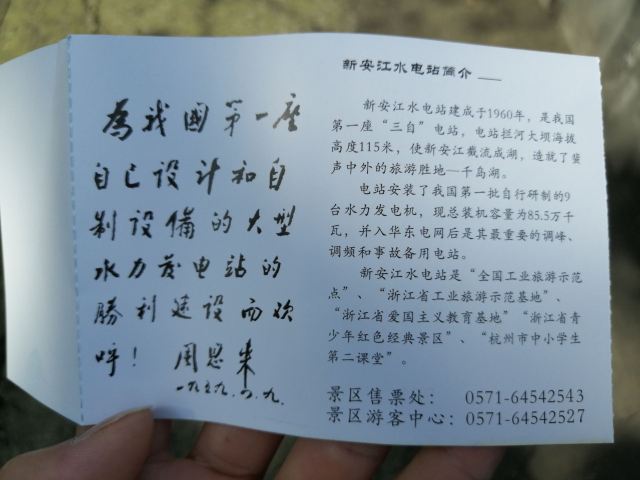 為我國第一座
自己设计和自
制设備的大型
水力发电站的
勝利建设而欢
呼！ 周恩来
一九五九.四.九.
新安江水电站简介 ——
新安江水电站建成于1960年，是我国
第一座“三自”电站，电站拦河大坝海拔
高度115米，使新安江截流成湖，造就了蜚
声中外的旅游胜地—千岛湖。
电站安装了我国第一批自行研制的9
台水力发电机，现总装机容量为85.5万千
瓦，并入华东电网后是其最重要的调峰、
调频和事故备用电站。
新安江水电站是“全国工业旅游示范
点”、“浙江省工业旅游示范基地”、
“浙江省爱国主义教育基地”“浙江省青
少年红色经典景区”、“杭州市中小学生
第二课堂”。
景区售票处： 0571-64542543
景区游客中心：0571-64542527